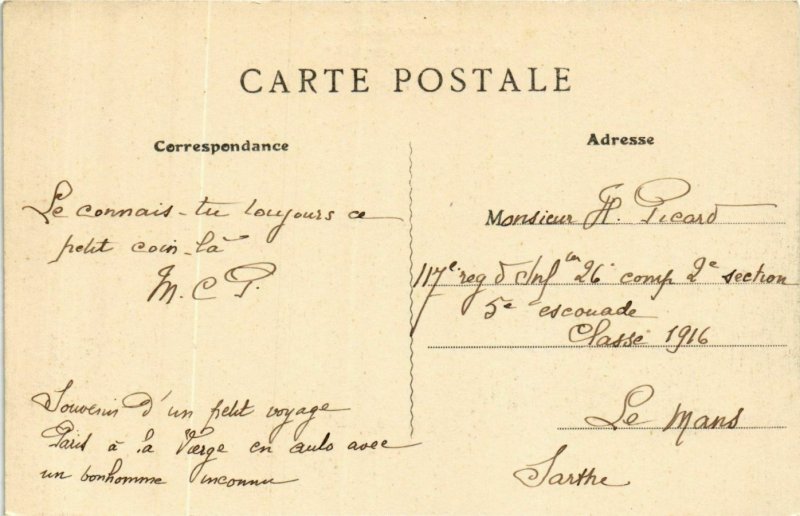 CARTE POSTALE
Correspondance
Le connais-tu toujours ce
petit coin-là
M. C P.
Souvenir d'un petit voyage
Paris à la en auto avec
un bonhomme inconnu
Adresse
Monsieur H. Picard
117e reg d'Infrie 26 comp 2e section
5e escouade
Classe 1916
Le Mans
Sarthe